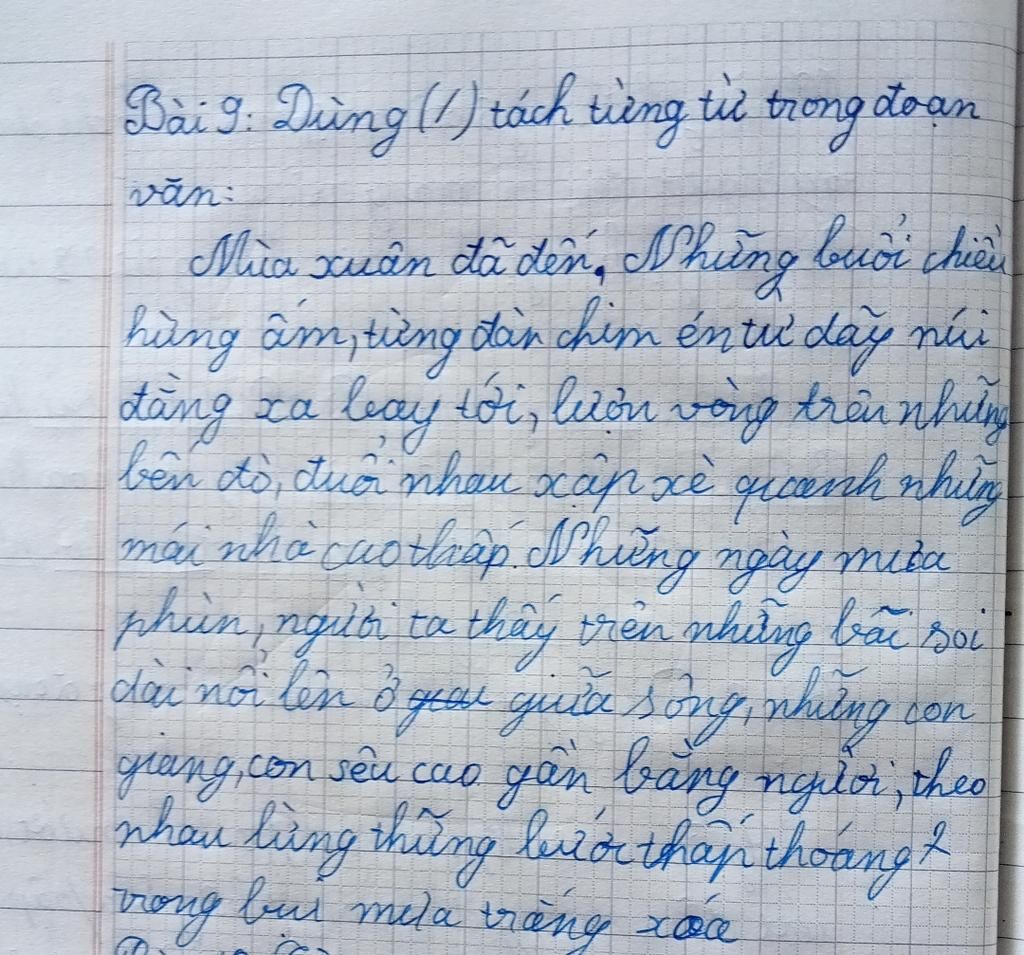 Bài 9: Dùng (/) tách từng từ trong đoạn
văn:
Mùa xuân đã đến. Những buổi chiều
hửng ấm, từng đàn chim én từ dãy núi
đằng xa bay tới, lượn vòng trên những
bến đò, đuổi nhau xập xè quanh những
mái nhà cao thấp. Những ngày mưa
phùn, người ta thấy trên những bãi soi
dài nổi lên ở giữa sông, những con
giang, con sếu cao gần bằng người, theo
nhau lững thững bước thấp thoáng
trong bụi mưa trắng xóa